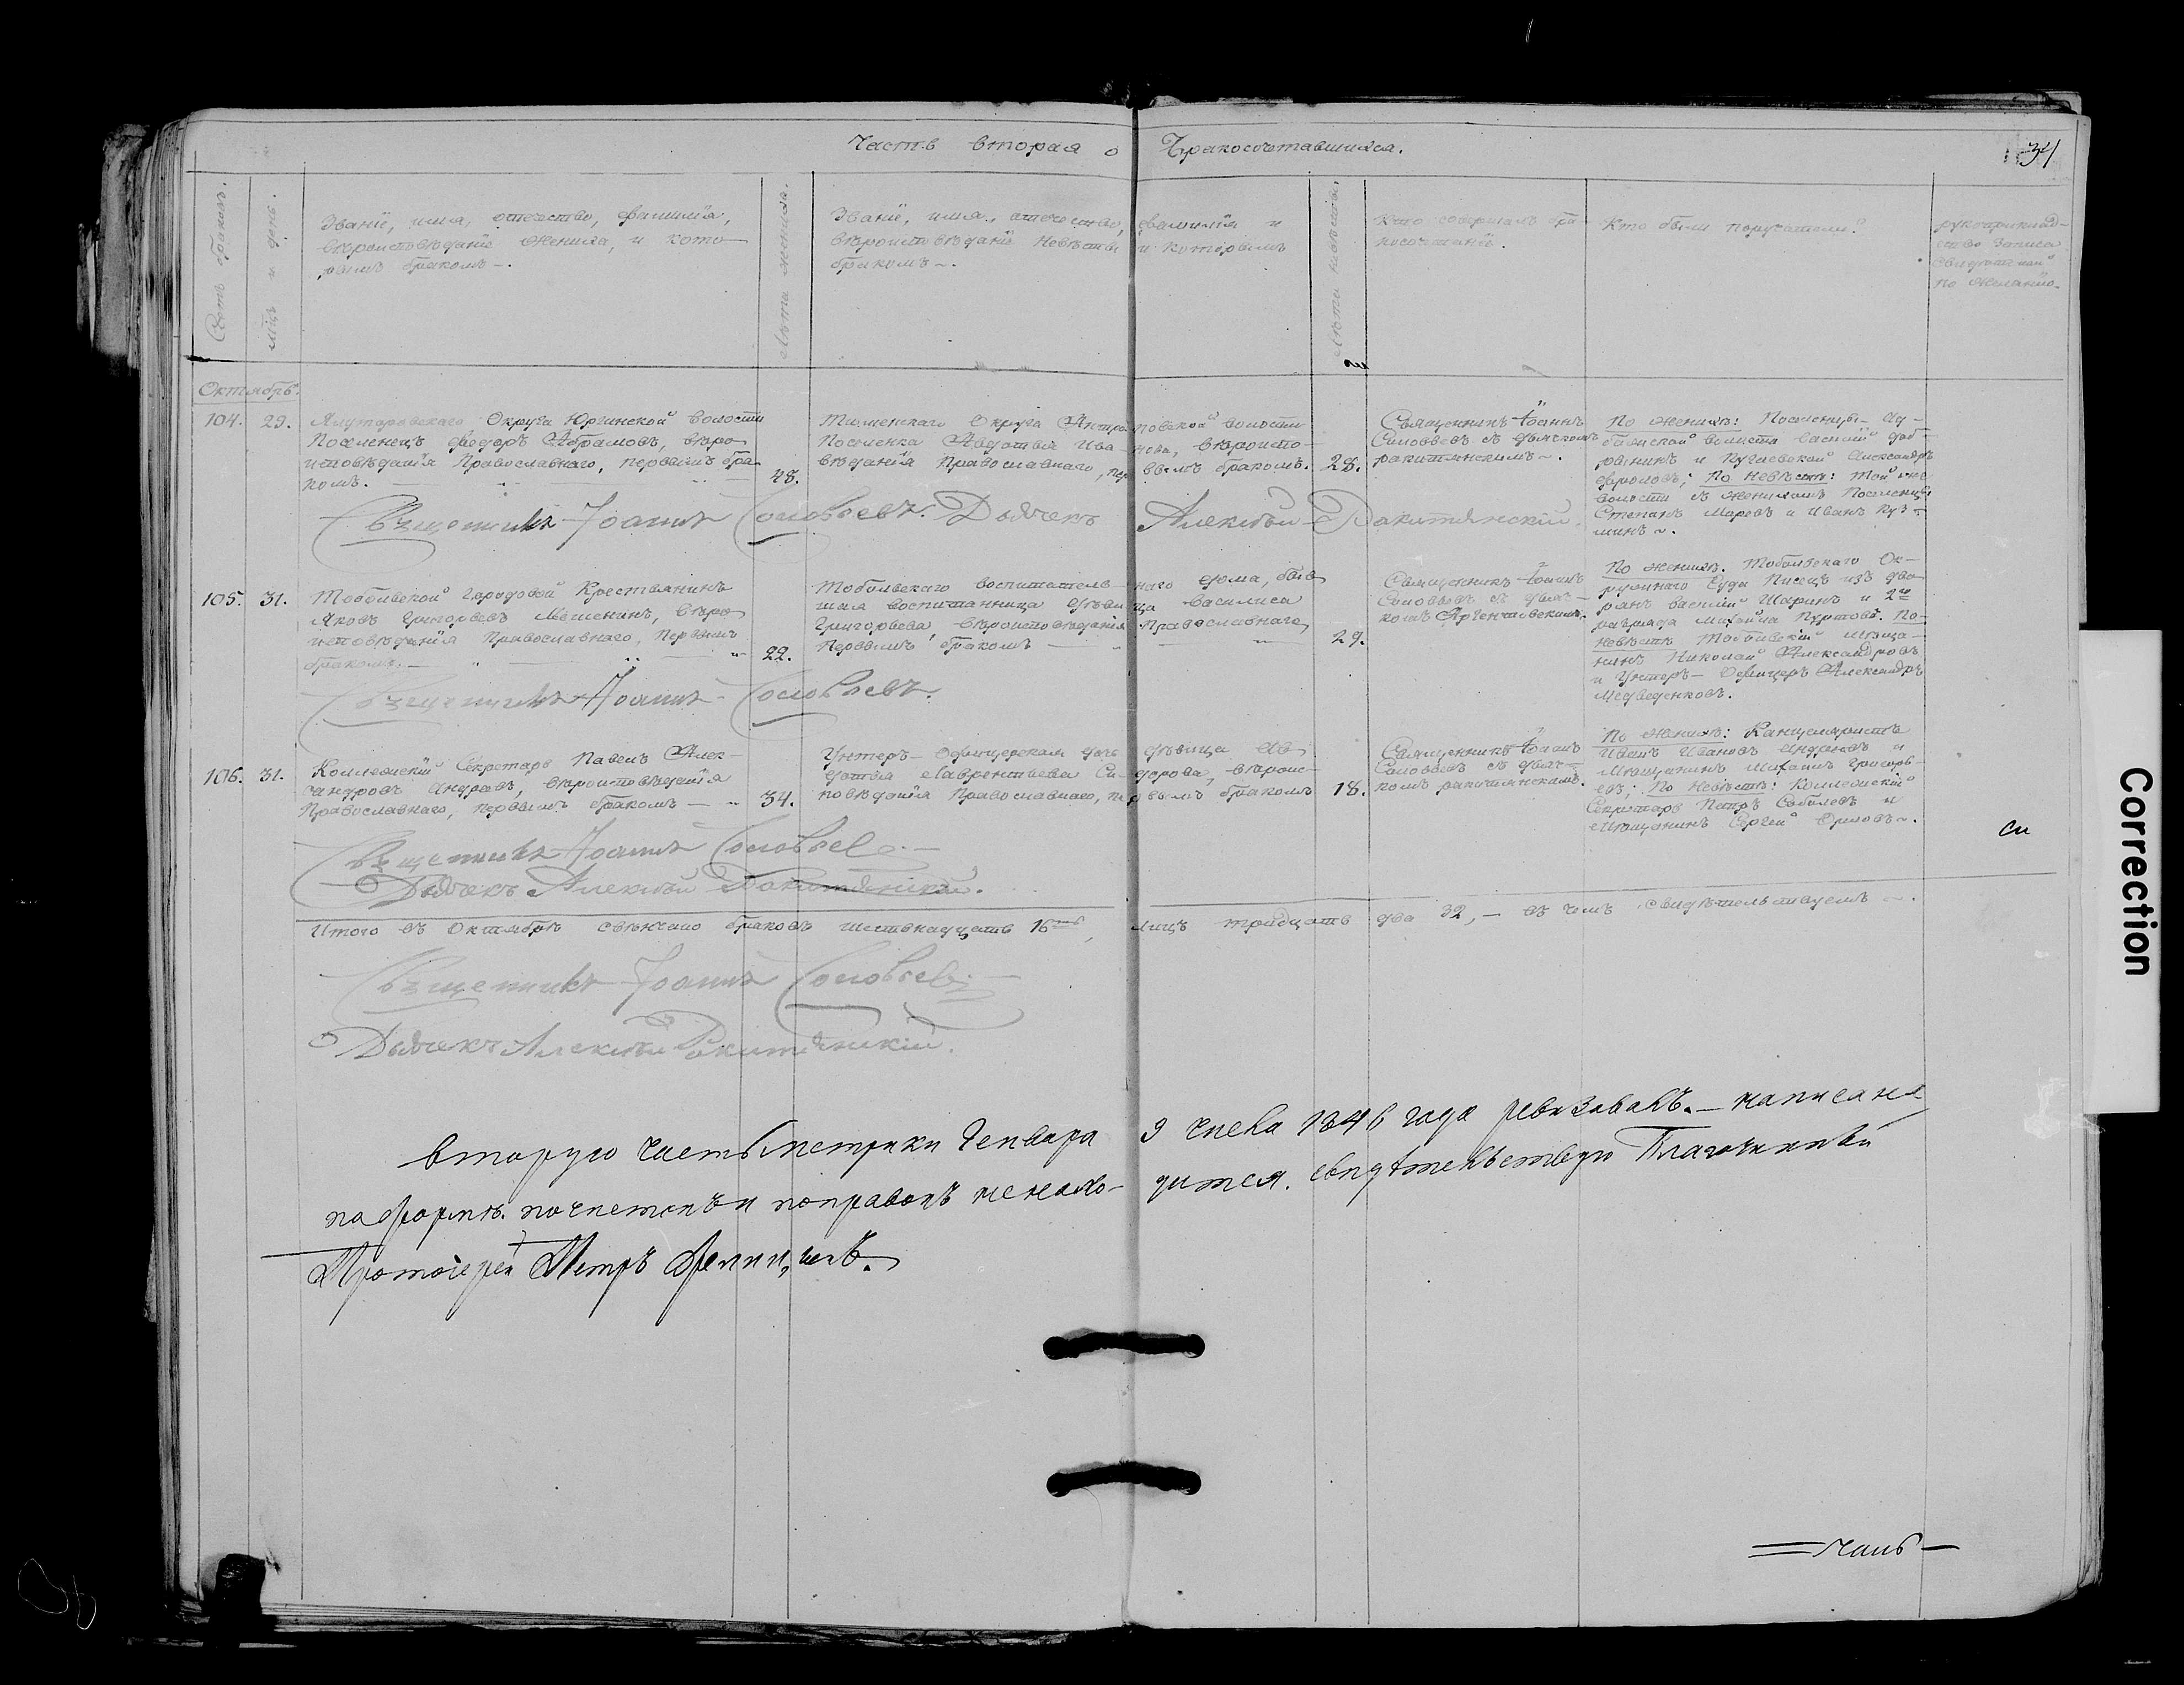 Часть вторая о Бракосочетавшихся.
34
Счетъ браковъ.
Мѣц. и день.
Званіе, имя, отечество, фамилія,
вѣроисповѣданіе Жениха, и кото-
рымъ бракомъ-.
Лѣта жениха.
Званіе, имя, отечество, фамилія и
вѣроисповѣданіе Невѣсты и которымъ
бракомъ.
Лѣта невѣсты.
Кто совершалъ бра-
косочетаніе.
Кто были поручители?
рукоприклад-
ство записа
по желанію.
Октябрь.
104. 29.
Ялуторовскаго Округа Юргинской волости
Поселенецъ Федоръ Абрамовъ, вѣро-
исповѣданія Православнаго, первымъ бра-
комъ.
48.
Тюменскаго Округа Антроповской волости
Поселенка Авдотья Иванова, вѣроиспо-
вѣданія Православнаго, первымъ бракомъ.
28.
Священникъ Іоаннъ
Соловьевъ съ дьячкомъ
ракитянскимъ.
По женихѣ: Поселенцы
волости Василій
и Александръ
фроловъ; По Невѣстѣ: той же
волости съ женихомъ Поселенцы
Степанъ Маровъ и Иванъ Куз-
минъ.
Священникъ Іоаннъ Соловьевъ. Дьячекъ Алексѣй Ракитянскій.
105. 31.
Тобольской Городовой Крестьянинъ
Яковъ Григорьевъ вѣро-
исповѣданія Православнаго, первымъ
бракомъ.
22.
Тобольскаго воспитательнаго дома, быв-
шая воспитанница дѣвица Василиса
Григорьева вѣроисповѣданія Православнаго
Первымъ бракомъ
29.
Священникъ Іоаннъ
Соловьевъ съ дьяч-
комъ Аргентовскимъ.
По женихѣ. Тобольскаго Ок-
ружнаго Суда Писецъ изъ дво-
рянъ Василій Шаринъ и 2го
разряда Михайла Пуртовъ. По
Невѣстѣ Тобольскій мѣща-
нинъ Николай Александровъ
и Унтеръ-Офицеръ Александръ
Медведенковъ.
Священникъ Іоаннъ Соловьевъ.
106. 31.
Коллежскій Секретарь Павелъ Алек-
сандровъ вѣроисповѣданія
Православнаго, первымъ бракомъ
34.
Унтеръ-офицерская дочь дѣвица Ав-
дотья Лаврентьева Сидорова, вѣроис-
повѣданія Православнаго, первымъ бракомъ
18.
Священникъ Іоаннъ
Соловьевъ съ дьяч-
комъ ракитянскимъ.
По женихѣ: Канцеляристъ
Иванъ Ивановъ и
Мѣщанинъ Михаилъ Григорь-
евъ; По Невѣстѣ: Коллежскій
Секретарь Петръ Соболевъ и
Мѣщанинъ Сергей Орловъ.
Священникъ Іоаннъ Соловьевъ
Дьячекъ Алексѣй Ракитянскій.
Итого въ Октябрѣ свѣнчано браковъ шестнадцать 16, лицъ тридцать два 32, - въ чемъ свидѣтельствуемъ.
Священникъ Іоаннъ Соловьевъ
Дьячекъ Алексѣй Ракитянскій.
вторую часть метрики Генваря 9 числа 1846 года ревизовалъ. - написана
по формѣ. почистокъ и поправокъ ненахо- дится. свидѣтельствую Благочинный
Протоіерей Петръ
Correction